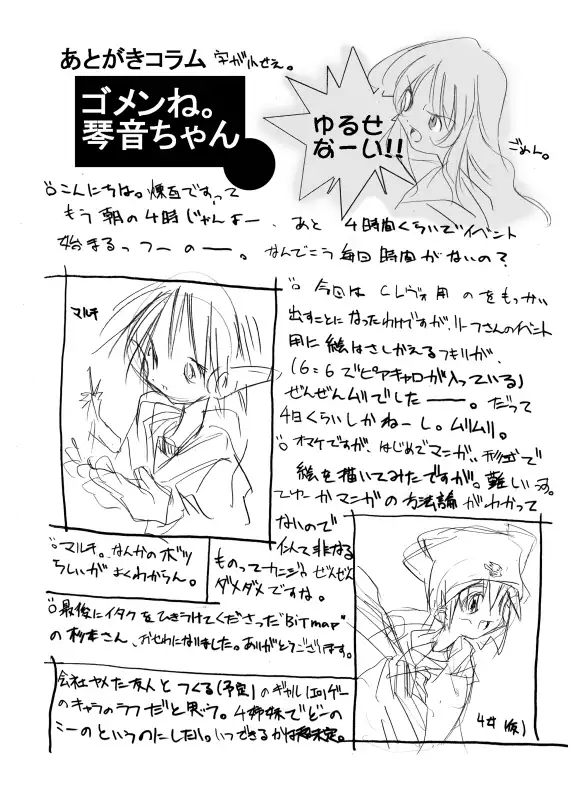 あとがきコラム 字が小せえ。
ゴメンね。
琴音ちゃん
ゆるせ
なーい!!
ごめん。
こんにちは。煉瓦ですって
もう朝の4時じゃんよー、あと 4時間くらいでイベント
始まるっつーのー。なんでこう毎回時間がないの?
マルチ
今回は CLヴォ用のをもっかい
出すことになったわけですが、リーフさんのイベント
用に絵はさしかえるフキリが、
(6=6でピアキャロが入っている)
ぜんぜんムリでしたーー。だって
4日くらいしかねーし。ムリムリ。
オマケですが、はじめてマンガ形式で
絵を描いてみたですが。難しい
てゆーかマンガの方法論がわかって
ないので
似て非なる
ものってカンジ。ぜんぜん
ダメダメですな。
マルチ。なんかのボツ
らしいがよくわからん。
最後にイタクをひきうけてくださった"BiTmap"
の杉本さん、おせわになりました。ありがとうございます。
会社ヤメた友人とつくる(予定)のギャル(エロ)ゲー
のキャラのラフだと思う。4姉妹でどーの
こーのというのにしたい。いつできるかは未定。
4女(仮)